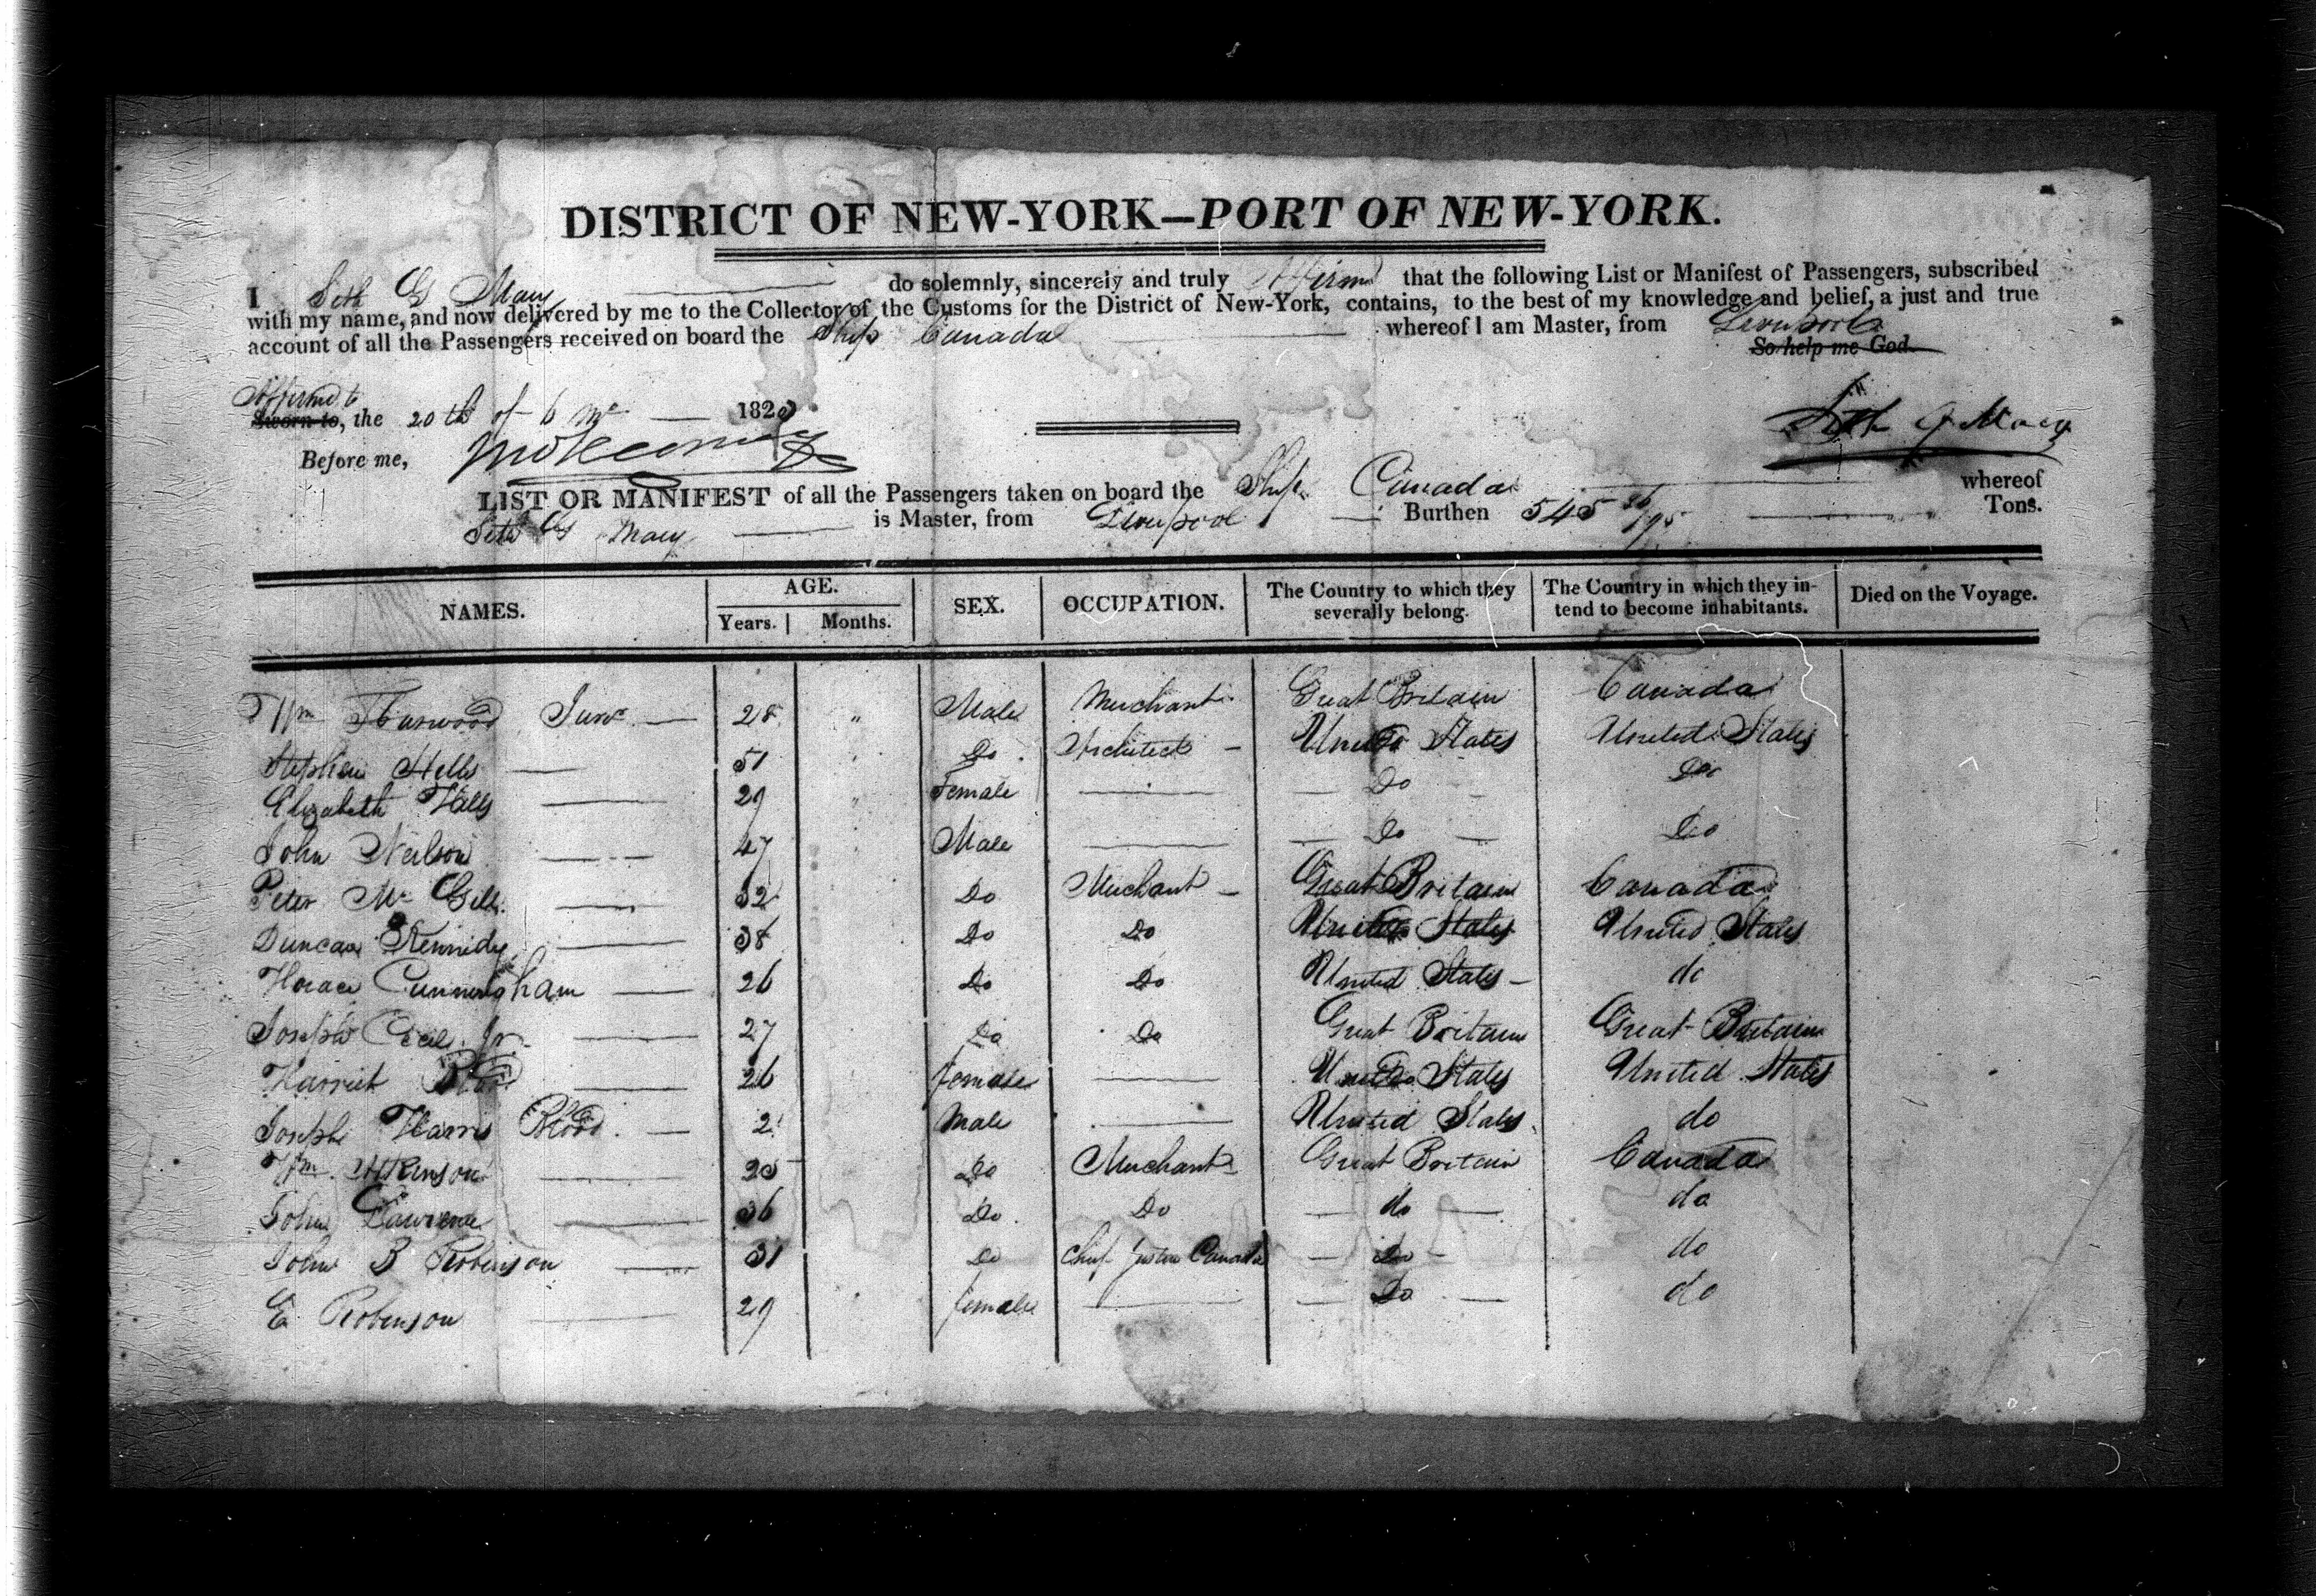 DISTRICT OF NEW-YORK—PORT OF NEW-YORK.
I Seth G Macy do solemnly, sincerely and truly Affirm that the following List or Manifest of Passengers, subscribed
with my name, and now delivered by me to the Collector of the Customs for the District of New-York, contains, to the best of my knowledge and belief, a just and true
account of all the Passengers received on board the Ship Canada whereof I am Master, from Liverpool
So help me God.
Affirmd to
Sworn to, the 20th of 6 mo 182
Seth G Macy
Before me,
LIST OR MANIFEST of all the Passengers taken on board the Ship Canada whereof
Seth G Macy is Master, from Liverpool Burthen 545 Tons.
NAMES. AGE. Years. Months. SEX. OCCUPATION. The Country to which they severally belong. The Country in which they intend to become inhabitants. Died on the Voyage.
Wm Harwood 28 " Male Merchant Great Britain Canada
Stephen Hills 51 " Do Architect United States United States
Elizabeth Hills 29 " Female Do Do
John Neilson 47 Male Do Do
Peter Mc Gill 32 Do Merchant Great Britain Canada
Duncan Kennedy 38 Do Do United States United States
Horace Cunningham 26 Do Do United States do
Joseph Jr. 27 Do Do Great Britain Great Britain
Harriet Blood 26 female United States United States
Joseph Harris Blood 2 Male United States do
Wm Atkinson 25 Do Merchant Great Britain Canada
John Lawrence 36 Do Do do do
John B Robinson 31 Do Chief Justice Canada Do do
E Robinson 29 female Do do